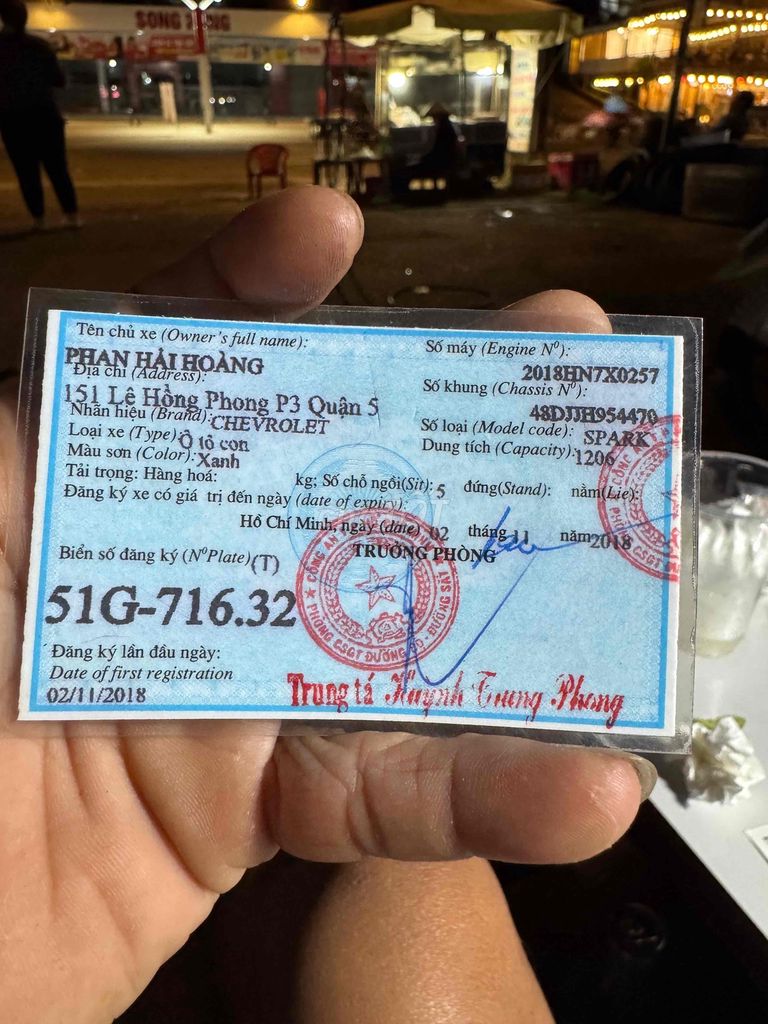 SONG
Tên chủ xe (Owner's full name):
PHAN HẢI HOÀNG
Địa chỉ (Address):
151 Lê Hồng Phong P3 Quận 5
Nhãn hiệu (Brand): CHEVROLET
Loại xe (Type): Ô tô con
Màu sơn (Color): Xanh
Tải trọng: Hàng hoá: kg; Số chỗ ngồi(Sit): 5 đứng(Stand): nằm(Lie):
Đăng ký xe có giá trị đến ngày (date of expiry):
Số máy (Engine Nº):
2018HN7X0257
Số khung (Chassis Nº):
48DJJH954470
Số loại (Model code): SPARK
Dung tích (Capacity): 1206
Hồ Chí Minh, ngày (date) 02 tháng 11 năm 2018
TRƯỞNG PHÒNG
Biển số đăng ký (NºPlate) (T)
51G-716.32
Đăng ký lần đầu ngày:
Date of first registration
02/11/2018
PHÒNG CSGT ĐƯỜNG BỘ - ĐƯỜNG SẮT
CÔNG AN
Trung tá Huỳnh Trung Phong